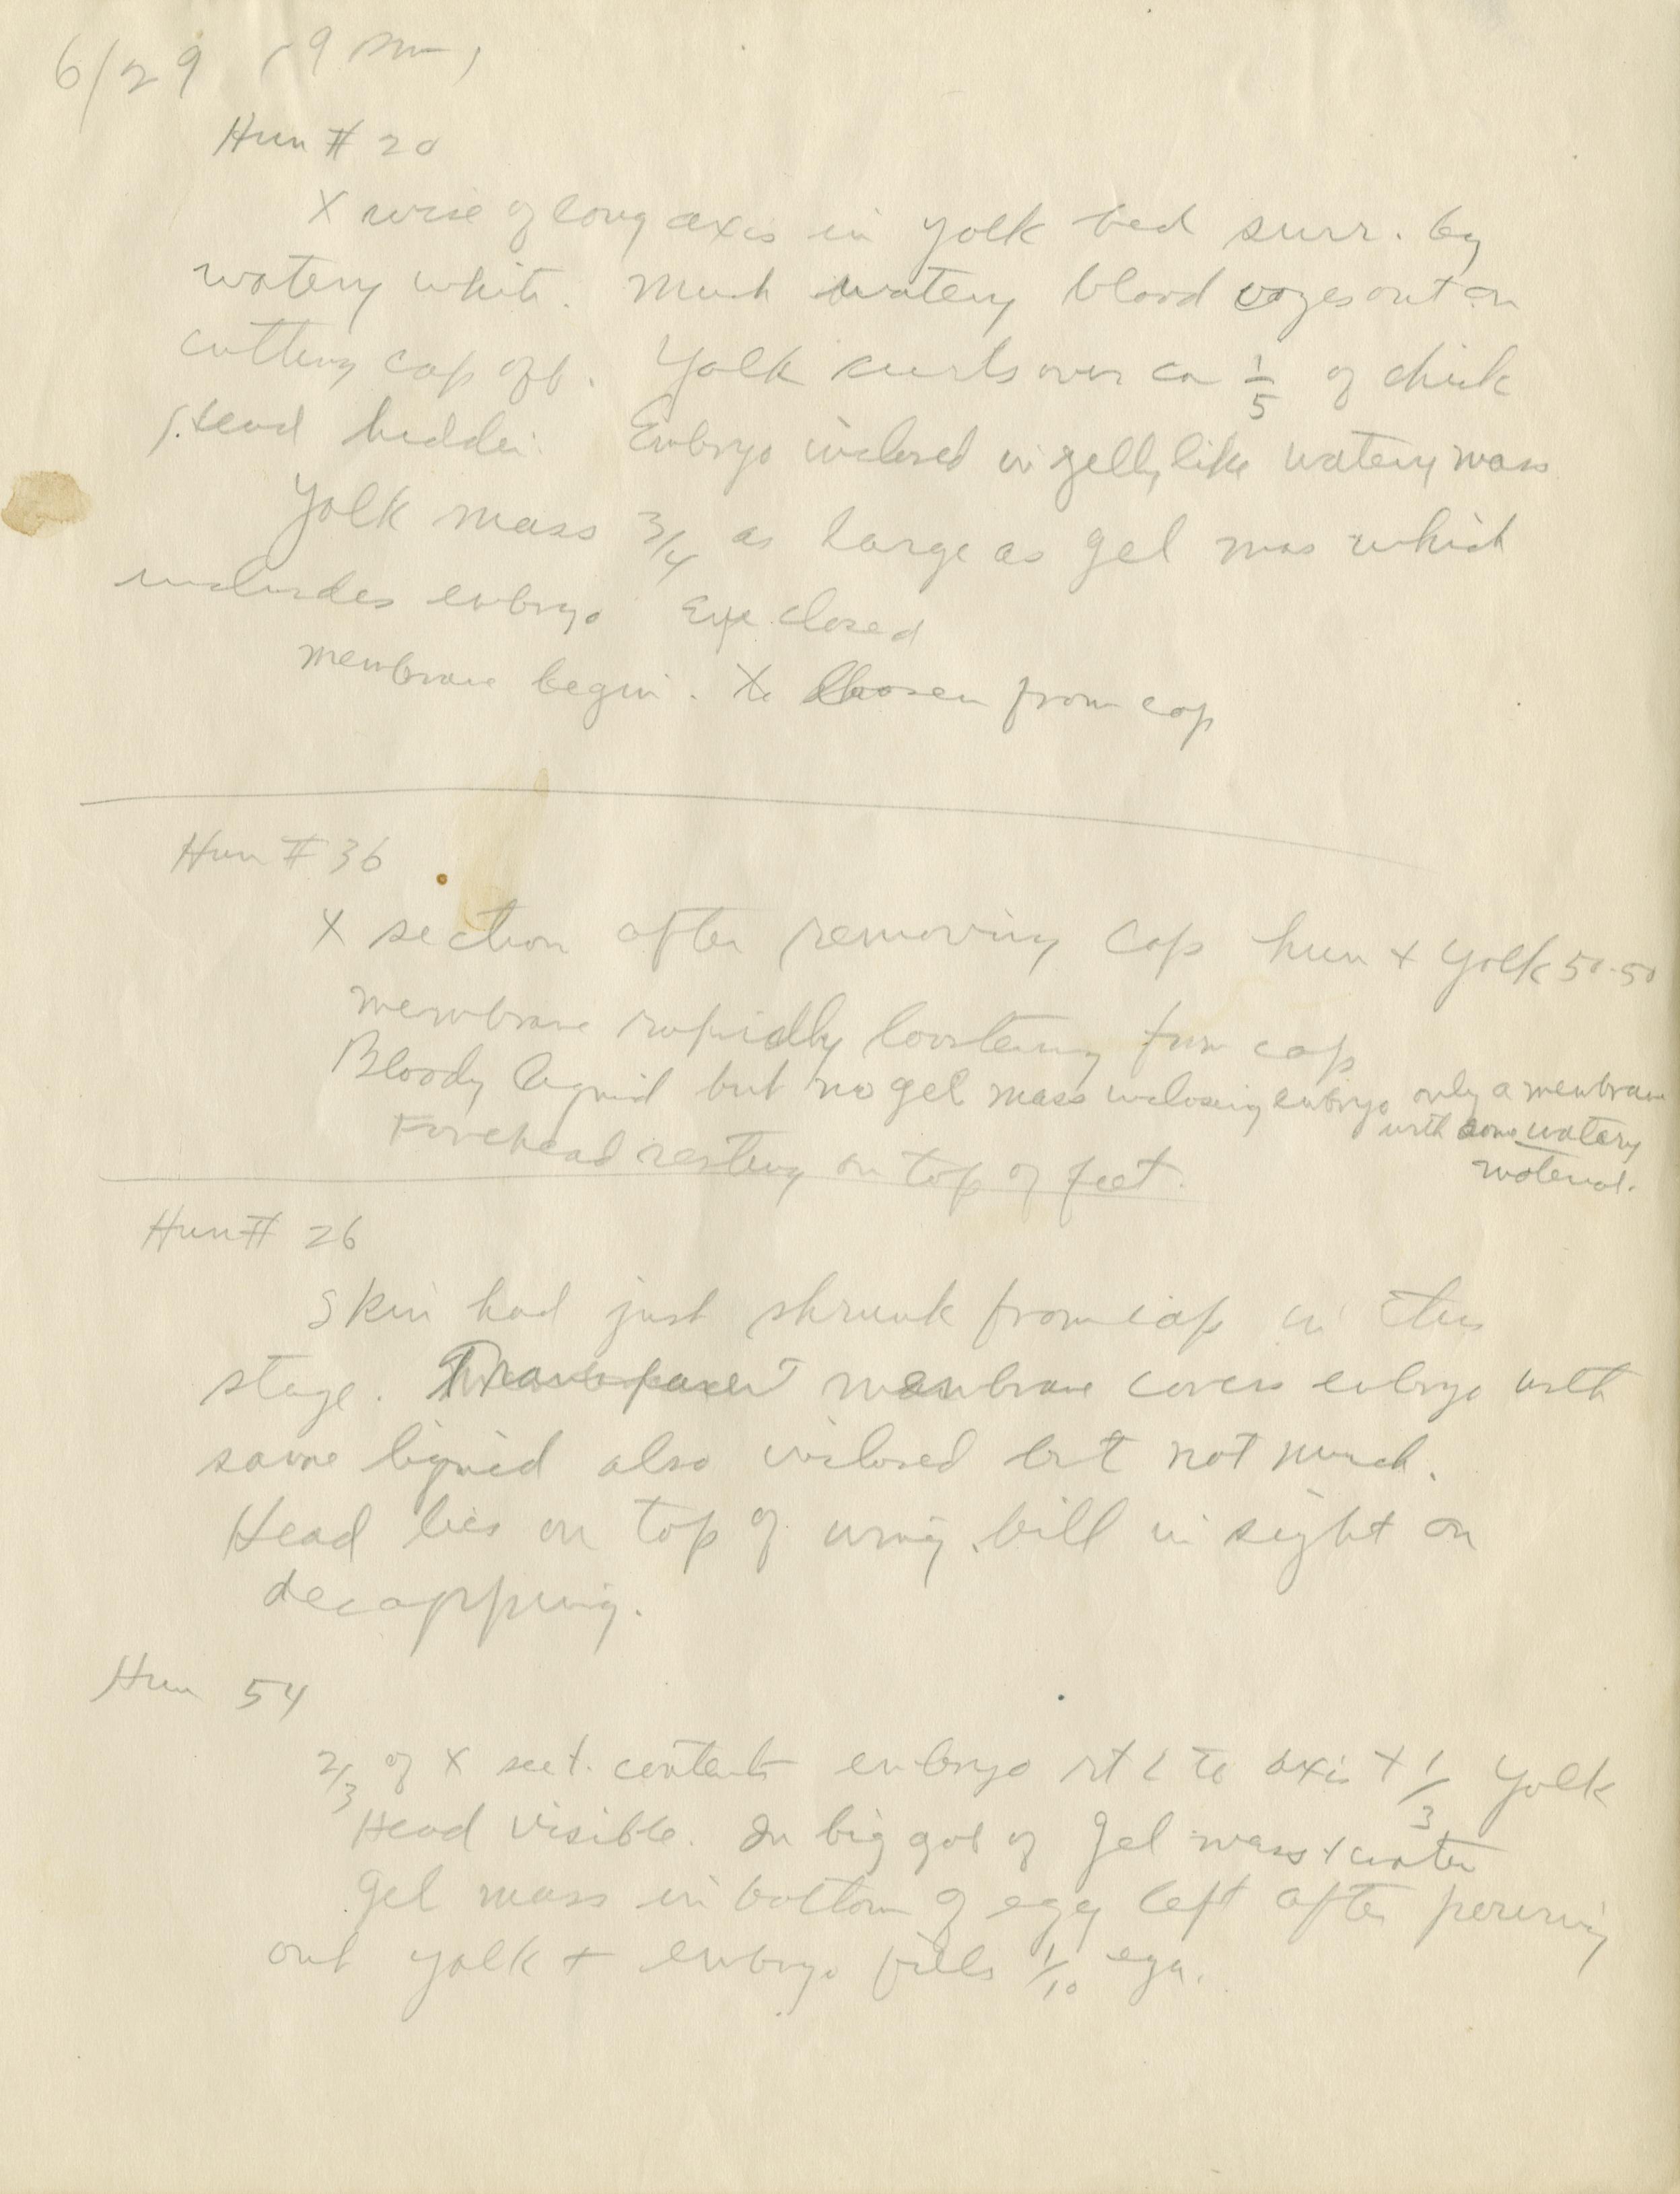 6/29 (9 am)
Hun # 20
X wise of long axis in yolk bed surr. by
watery white. Much watery blood oozes out on
cutting cap off. Yolk curls over ca 1/5 of chick
Head hidden. Embryo inclosed in gelly like watery mass
Yolk mass 3/4 as large as gel mas which
includes embryo Eye closed
membrane begin. to loosen from cap
Hun # 36
X section after removing cap hun + yolk 50-50
membrane rapidly loostening from cap
Bloody liquid but no gel mass inclosing embryo only a membrane
with some watery
material.
Forehead resting on top of feet.
Hun # 26
Skin had just shrunk from cap in this
stage. Transparent membrane covers embryo with
some liquid also inclosed but not much.
Head lies on top of wing, bill in sight on
decapping.
Hun 54
2/3 of X sect. contents embryo rt ∠ to axis + 1/3 yolk
Head visible. In big gob of gel mass + water
Gel mass in bottom of egg left after pouring
out yolk + embryo fills 1/10 egg.